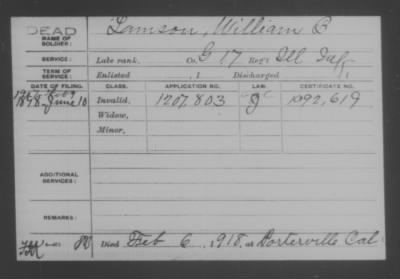 DEAD
NAME OF SOLDIER: Lamson, William B
SERVICE: Late rank, Co. G 17 Reg't Ill Inf
TERM OF SERVICE: Enlisted , 1 Discharged , 1
DATE OF FILING. CLASS. APPLICATION NO. LAW. CERTIFICATE NO.
1898 June 10 Invalid, 1207.803 1092,619
Widow,
Minor,
ADDITIONAL SERVICES:
REMARKS:
Died Feb 6, 1918, at Porterville Cal